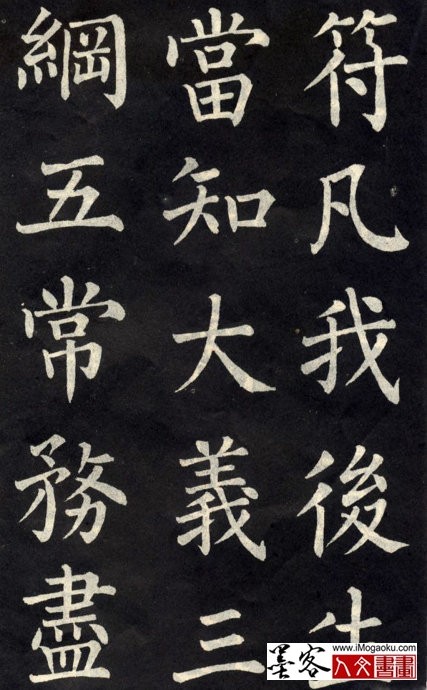 符凡我後生
當知大義三
綱五常務盡
www.iMogaoku.com
墨客
人文書畫